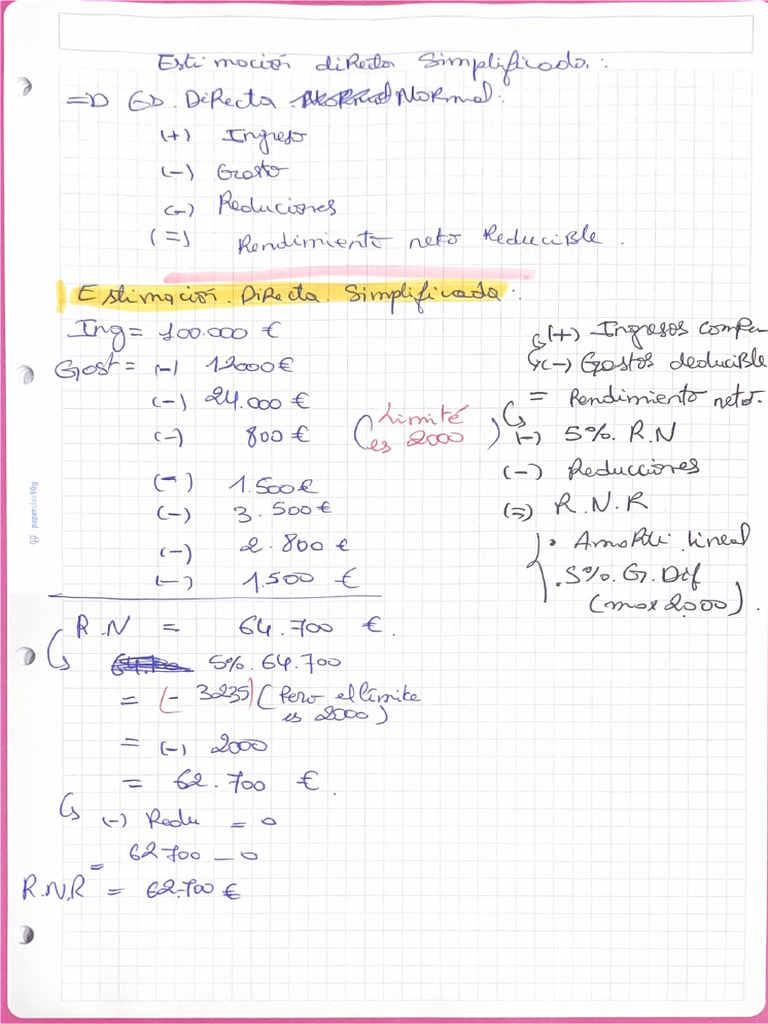 Estimación directa Simplificada:
=D ED. Directa Normal:
(+) Ingreso
(-) Gasto
(-) Reduciones
(=) Rendimiento neto Reducible.
Estimación. Directa. Simplificada:
Ing = 100.000 €
Gast = (-) 12000 €
(-) 24.000 €
(-) 800 € (Limité es 2000)
(-) 1.500 €
(-) 3.500 €
(-) 2.800 €
(-) 1.500 €
R.N = 64.700 €.
5%. 64.700
= (- 3235) (Pero el límite
es 2000)
= (-) 2000
= 62.700 €.
(-) Redu = 0
= 62700 - 0
R.N.R = 62.700 €
(+) Ingresos compu
(-) Gastos deducible
= Rendimiento neto.
(-) 5%. R.N
(-) Reducciones
(=) R.N.R
• Amorti. lineal
. 5%. G. Dif
(max 2000).
90g